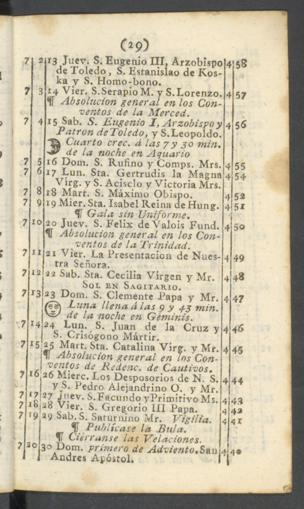 (29)
7 2 13 Juev. S. Eugenio III, Arzobispo 4 58
de Toledo, S. Estanislao de Kos-
ka y S. Homo-bono.
7 3 14 Vier. S. Serapio M. y S. Lorenzo. 4 57
¶ Absolucion general en los Con-
ventos de la Merced.
7 4 15 Sab. S. Eugenio I, Arzobispo y 4 56
Patron de Toledo, y S. Leopoldo.
Cuarto crec. á las 7 y 30 min.
de la noche en Aquario
7 5 16 Dom. S. Rufino y Comps. Mrs. 4 55
7 6 17 Lun. Sta. Gertrudis la Magna 4 54
Virg. y S. Acisclo y Victoria Mrs.
7 8 18 Mart. S. Máximo Obispo. 4 52
7 9 19 Mier. Sta. Isabel Reina de Hung. 4 51
¶ Gala sin Uniforme.
7 10 20 Juev. S. Felix de Valois Fund. 4 50
¶ Absolucion general en los Con-
ventos de la Trinidad.
7 11 21 Vier. La Presentacion de Nues- 4 49
tra Señora.
7 12 22 Sab. Sta. Cecilia Virgen y Mr. 4 48
SOL EN SAGITARIO.
7 13 23 Dom. S. Clemente Papa y Mr. 4 47
Luna llena á las 9 y 43 min.
de la noche en Géminis.
7 14 24 Lun. S. Juan de la Cruz y 4 46
S. Crisógono Mártir.
7 15 25 Mart. Sta. Catalina Virg. y Mr. 4 45
¶ Absolucion general en los Con-
ventos de Redenc. de Cautivos.
7 16 26 Mierc. Los Desposorios de N. S. 4 44
y S. Pedro Alejandrino O. y Mr.
7 17 27 Juev. S. Facundo y Primitivo Ms. 4 43
7 18 28 Vier. S. Gregorio III Papa. 4 42
7 19 29 Sab. S. Saturnino Mr. Vigilia. 4 41
¶ Publícase la Bula.
¶ Ciérranse las Velaciones.
7 20 30 Dom. primero de Adviento. San 4 40
Andres Apóstol.